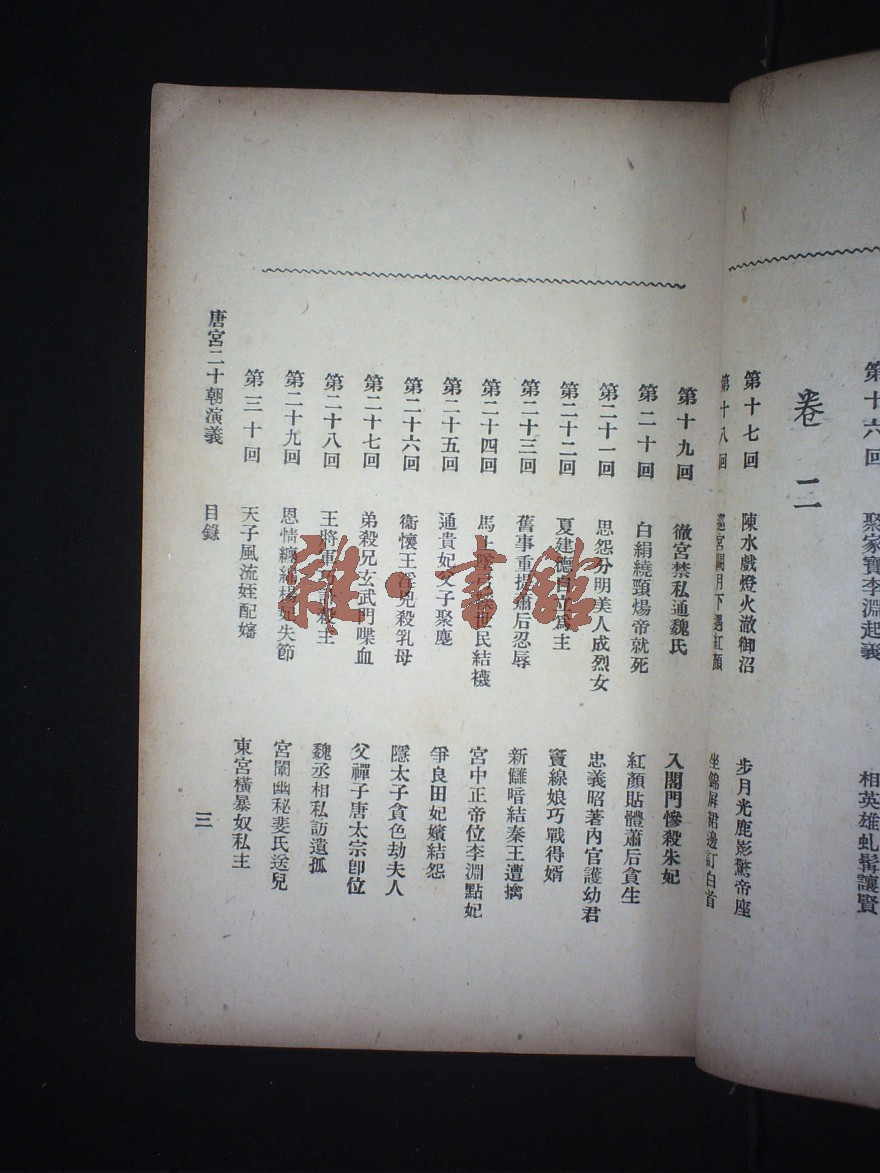 第十六回　聚家寶李淵起義　相英雄虬髯讓賢
卷二
第十七回　陳水戲燈火澈御沼　步月光鹿影驚帝座
第十八回　巡宮闈月下遇紅顏　坐錦屏裙邊訂白首
第十九回　徹宮禁私通魏氏　入閣門慘殺朱妃
第二十回　白絹繞頸煬帝就死　紅顏貼體蕭后貪生
第二十一回　思怨分明美人成烈女　忠義昭著內官護幼君
第二十二回　夏建德自立爲主　竇線娘巧戰得婿
第二十三回　舊事重提蕭后忍辱　新讎暗結秦王遭擒
第二十四回　馬上 民結襪　宮中正帝位李淵點妃
第二十五回　通貴妃父子聚麀　爭良田妃嬪結怨
第二十六回　衞懷王淫兇殺乳母　隱太子貪色劫夫人
第二十七回　弟殺兄玄武門喋血　父禪子唐太宗卽位
第二十八回　王將軍 殺主　魏丞相私訪遺孤
第二十九回　恩情纏綿楊妃失節　宮闈幽秘裴氏送兒
第三十回　天子風流姪配嬸　東宮橫暴奴私主
唐宮二十朝演義　目錄　三
雜·書館